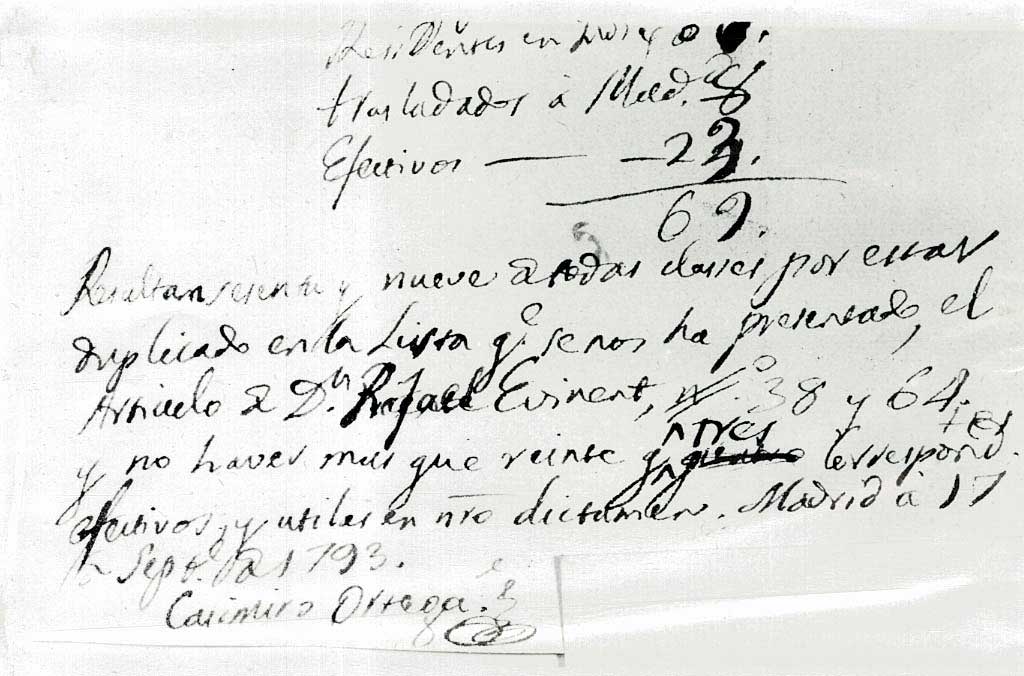 Residentes en
trasladados à Mad.d 8
Efectivos — – 23.
69.
Resultan sesenta y nueve de todas clases por estar
duplicado en la Lista q.e se nos ha presentado, el
Articulo de D.n Rafael Evinent, n.o 38 y 64.
y no haver mas que veinte y tres Correspond.tes
efectivos, y utiles en nro dictamen. Madrid à 17
de Sept.e de 1793.
Casimiro Ortega.